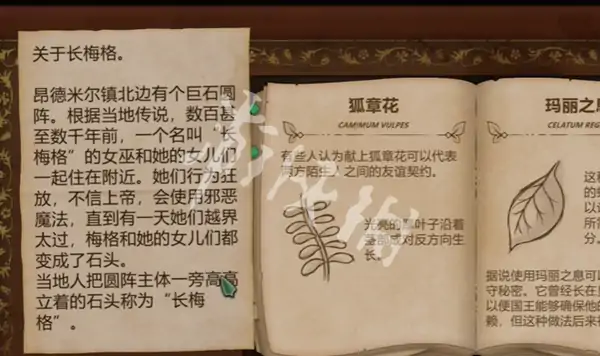 关于长梅格。
昂德米尔镇北边有个巨石圆
阵。根据当地传说，数百甚
至数千年前，一个名叫“长
梅格”的女巫和她的女儿们
一起住在附近。她们行为狂
放，不信上帝，会使用邪恶
魔法，直到有一天她们越界
太过，梅格和她的女儿们都
变成了石头。
当地人把圆阵主体一旁高高
立着的石头称为“长梅
格”。
狐章花
CAMIMUM VULPES
有些人认为献上狐章花可以代表
两方陌生人之间的友谊契约。
光亮的叶子沿着
茎部成对反方向生
长。
玛丽之息
CELATUM REG
这
的
以
所
分。
据说使用玛丽之息可
守秘密。它曾经长在
以便国王能够确保他的
赖，但这种做法后来
游侠网